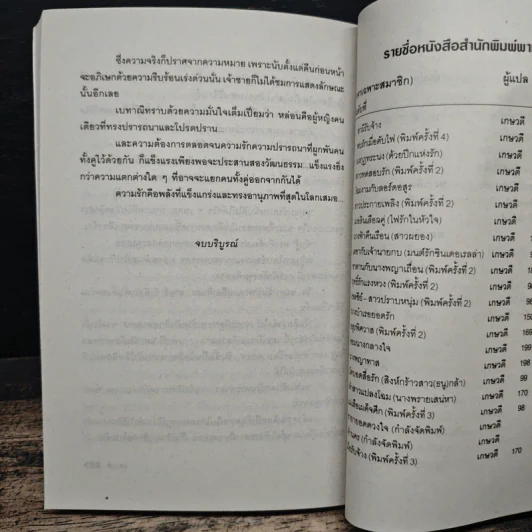 ซึ่งความจริงก็ปราศจากความหมาย เพราะนับตั้งแต่คืนก่อนหน้า
จะอภิเษกด้วยความรีบร้อนเร่งด่วนนั้น เจ้าชายก็ไม่ได้ชมการแสดงลักษณะ
นั้นอีกเลย
เบทาณีทราบด้วยความมั่นใจเต็มเปี่ยมว่า หล่อนคือผู้หญิงคน
เดียวที่ทรงปรารถนาและโปรดปราน...
และความต้องการตลอดจนความรักความปรารถนาที่ผูกพันคน
ทั้งคู่ไว้ด้วยกัน ก็แข็งแรงเพียงพอจะประสานสองวัฒนธรรม...แข็งแรงยิ่ง
กว่าความแตกต่างใด ๆ ที่อาจจะแยกคนทั้งคู่ออกจากกันได้
ความรักคือพลังที่แข็งแกร่งและทรงอานุภาพที่สุดในโลกเสมอ...
จบบริบูรณ์
รายชื่อหนังสือสำนักพิมพ์
เฉพาะสมาชิก) ผู้แปล
รับจ้าง เกษวดี
เมื่อดับไฟ (พิมพ์ครั้งที่ 4) เกษวดี
(ด้วยปีกแห่งรัก) เกษวดี
ทดสอบรัก (พิมพ์ครั้งที่ 2) เกษวดี
กับดอร์ดอสูร เกษวดี
ประกายเพลิง (พิมพ์ครั้งที่ 2) เกษวดี
(ไฟรักในหัวใจ) เกษวดี
คืนเรือน (สาวผยอง) เกษวดี
กับเจ้านายกบ (มนต์รักซินเดอเรลล่า) เกษวดี
กับนางพญาเถื่อน (พิมพ์ครั้งที่ 2) เกษวดี
รักแรงหวง (พิมพ์ครั้งที่ 2) เกษวดี
- สาวปราบหนุ่ม (พิมพ์ครั้งที่ 2) เกษวดี
เกษวดี 150
พิศวาส (พิมพ์ครั้งที่ 2) เกษวดี 169
นางกลางใจ เกษวดี 199
พญาทาส เกษวดี 198
รัก (สิงห์กร้าวสาว(ธนู)กล้า) เกษวดี 99
สาวแปลงโฉม (นางพรายเสน่หา) เกษวดี 170
(พิมพ์ครั้งที่ 3) เกษวดี 98
ยอดดวงใจ (กำลังจัดพิมพ์) เกษวดี
(กำลังจัดพิมพ์) เกษวดี
รับจ้าง (พิมพ์ครั้งที่ 3) เกษวดี 170